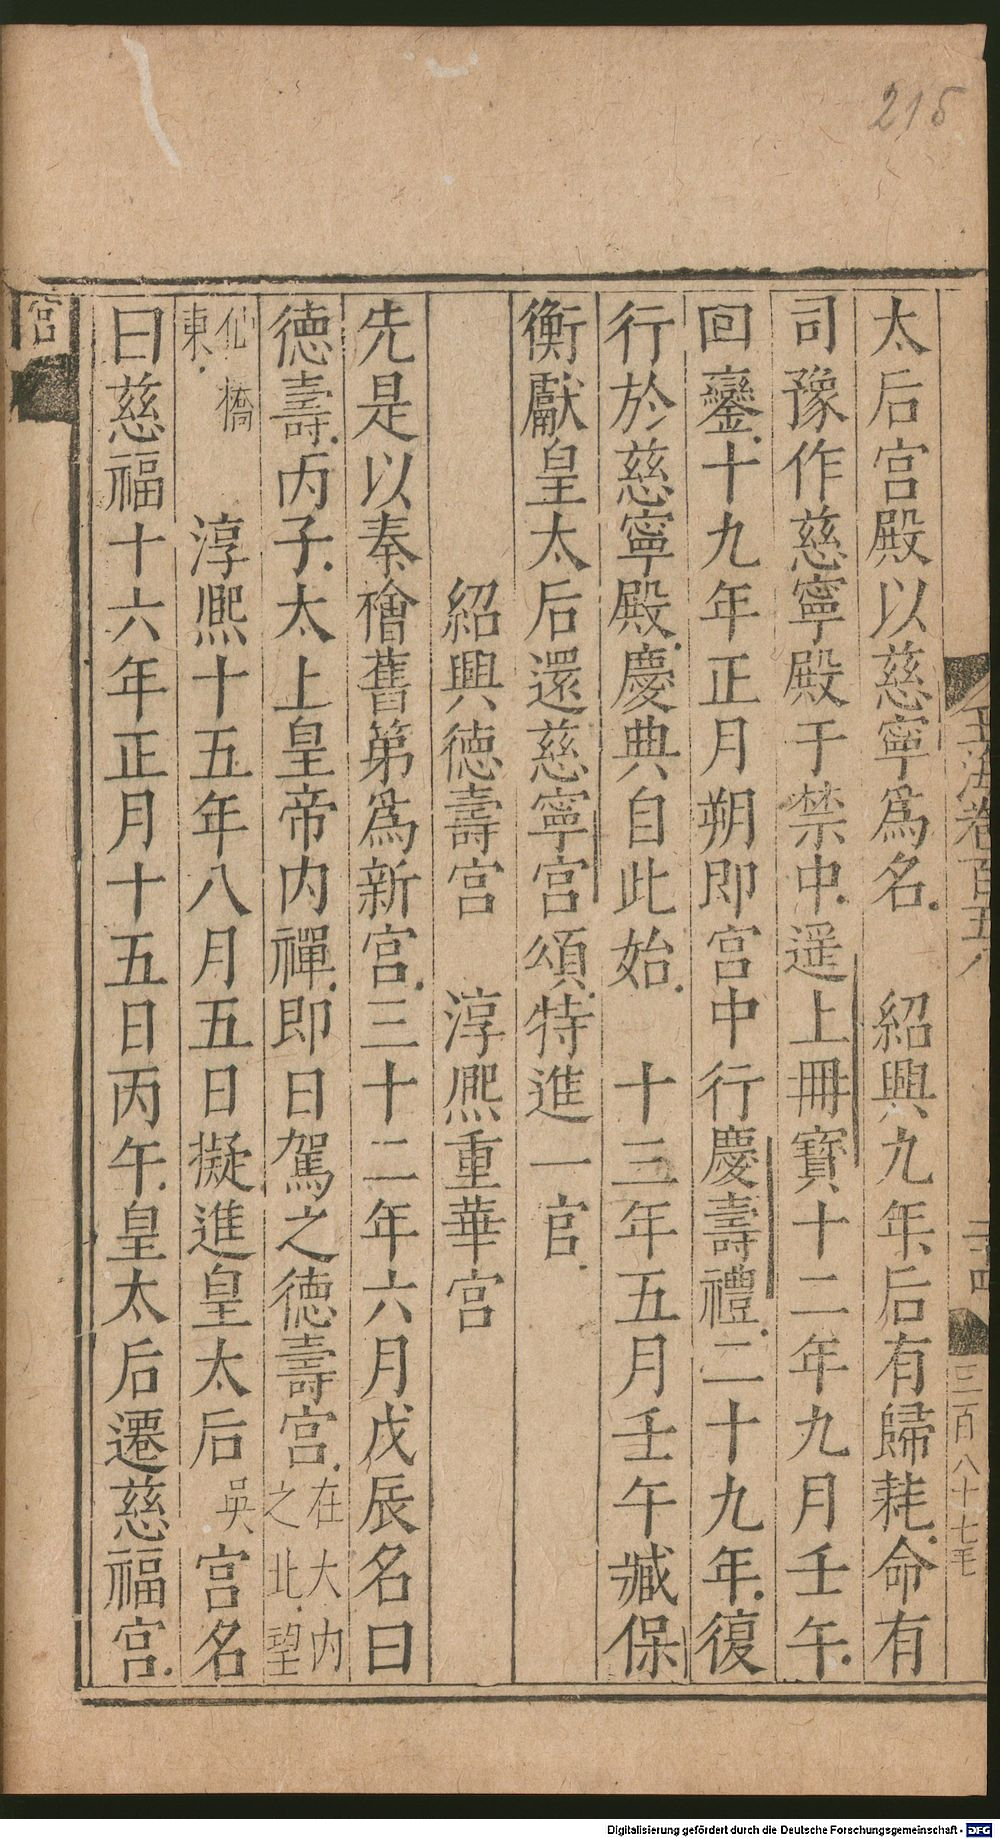 215
玉海卷百五
三百八十七
太后宫殿以慈寧爲名 紹興九年后有歸耗命有
司豫作慈寧殿于禁中遥上冊寳十二年九月壬午
回鑾十九年正月朔即宫中行慶壽禮二十九年復
行於慈寧殿慶典自此始 十三年五月壬午臧保
衡獻皇太后還慈寧宫頌特進一官
紹興德壽宫 淳熈重華宫
先是以秦檜舊第爲新宫三十二年六月戊辰名曰
德壽丙子太上皇帝内禪即日駕之德壽宫在大内之北望
仙橋東 淳熈十五年八月五日擬進皇太后吳宫名
曰慈福十六年正月十五日丙午皇太后遷慈福宫
宫
Digitalisierung gefördert durch die Deutsche Forschungsgemeinschaft - DFG